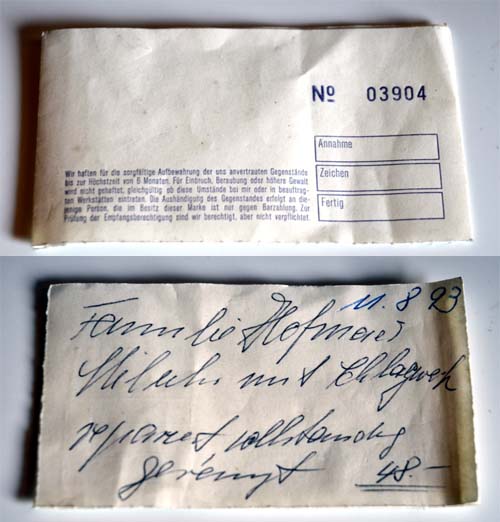 Nº 03904
Annahme
Zeichen
Fertig
Wir haften für die sorgfältige Aufbewahrung der uns anvertrauten Gegenstände
bis zur Höchstzeit von 6 Monaten. Für Einbruch, Beraubung oder höhere Gewalt
wird nicht gehaftet, gleichgültig ob diese Umstände bei mir oder in beauftrag-
ten Werkstätten eintreten. Die Aushändigung des Gegenstandes erfolgt an die-
jenige Person, die im Besitz dieser Marke ist nur gegen Barzahlung. Zur
Prüfung der Empfangsberechtigung sind wir berechtigt, aber nicht verpflichtet.
11.8 93
Familie Hofmaier
Stiluhr mit Schlagwerk
repariert vollständig
gereinigt 48.-